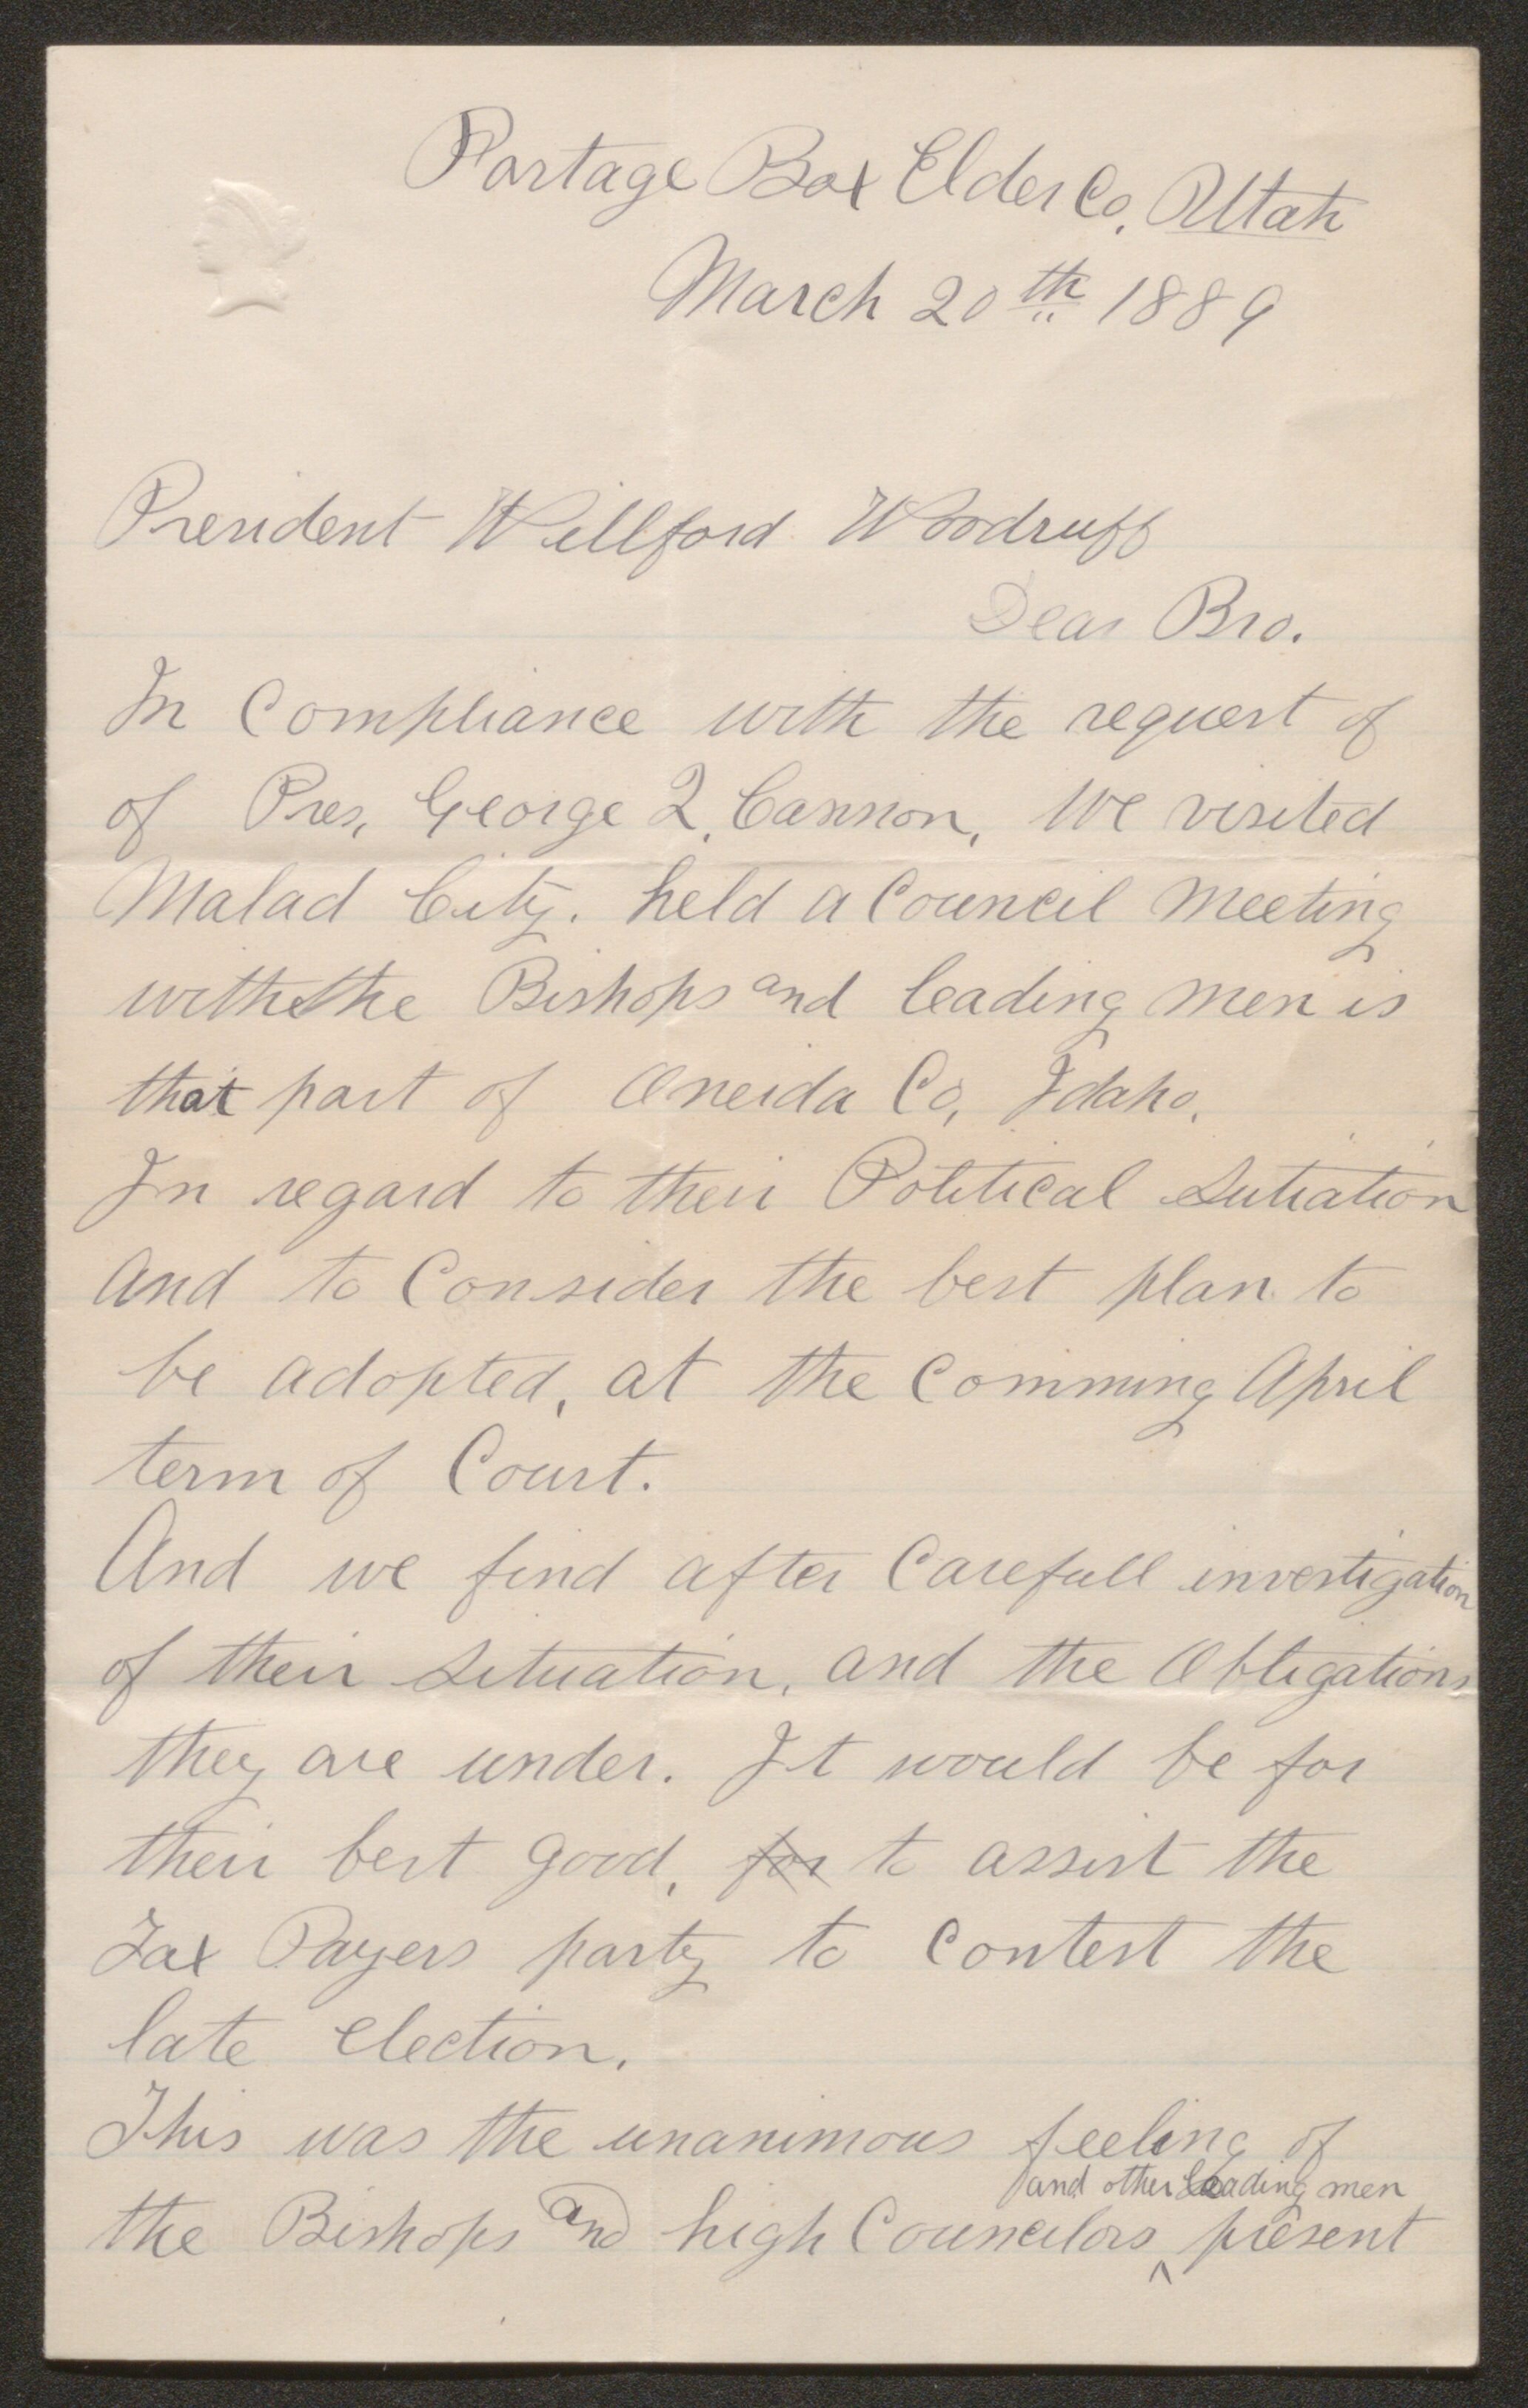 Portage Box Elder Co, Utah
March 20th 1889
President Willford Woodruff
Dear Bro.
In Compliance with the request of
of Pres, George Q. Cannon, We visited
Malad City. held a Council Meeting
with the Bishops and leading men is
that part of Oneida Co, Idaho.
In regard to their Political Sutiation
and to Consider the best plan to
be adopted, at the Comming April
term of Court.
And we find after Carefull investigation
of their Situation, and the Obligations
they are under. It would be for
their best good, for to assist the
Tax Payers party to Contest the
late election.
This was the unanimous feeling of
and other leading men
the Bishops and high Councilors ^ present